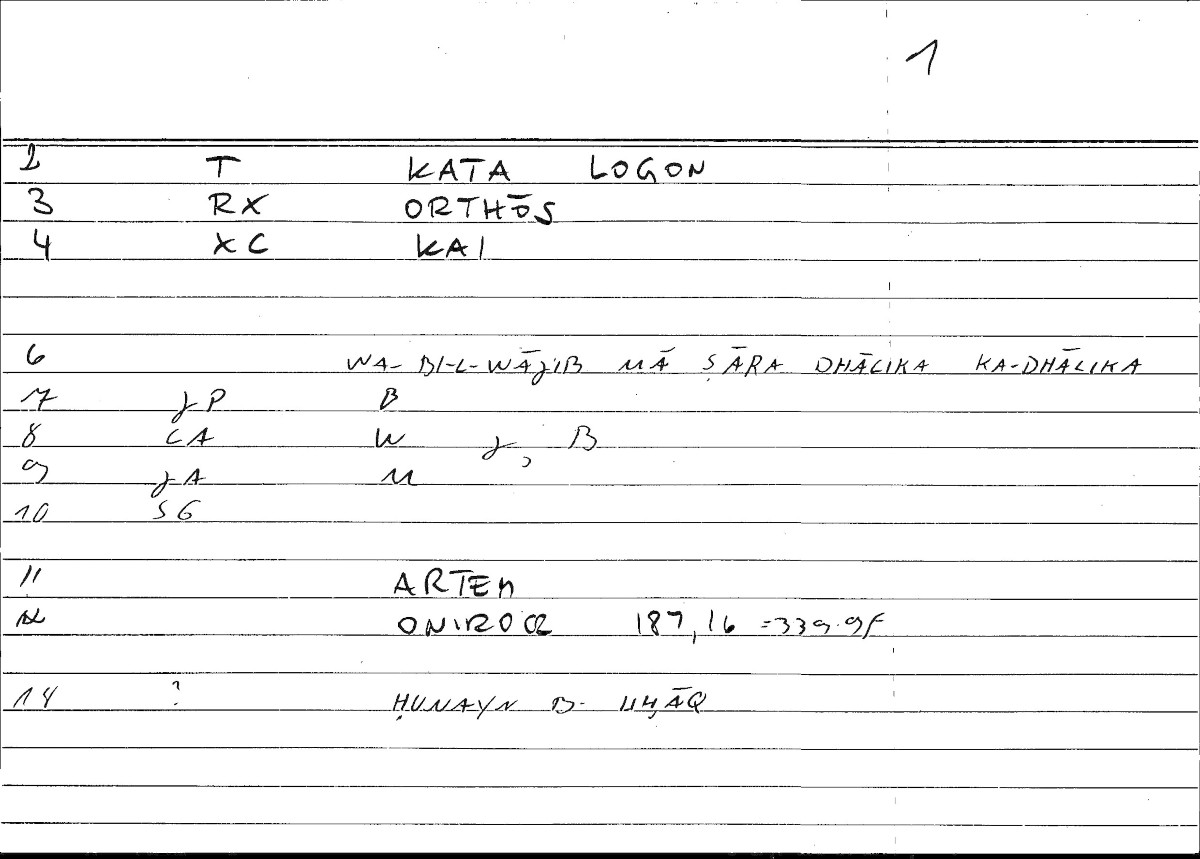 1
2 T KATA LOGON
3 RX ORTHŌS
4 XC KAI
6 WA-BI-L-WĀJIB MĀ ṢĀRA DHĀLIKA KA-DHĀLIKA
7 JP B
8 CA W J, B
9 JA M
10 SG
11 ARTEM
12 ONIROCR 187,16 =339.9F
14 ? ḤUNAYN B-